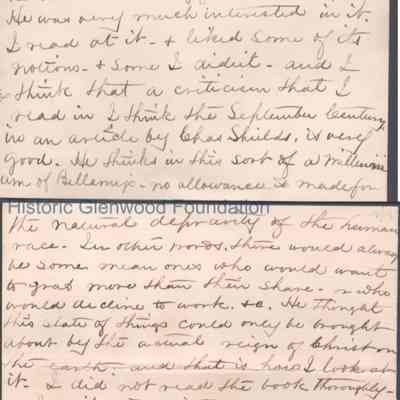 He was very much interested in it.
I read at it - & liked some of its
notions - & some I didn't - and I
think that a criticism that I
read in I think the September Century,
in an article by Chas Shields, is very
good. He thinks in this sort of a Millenni
um of Bellamy's - no allowance is made for
Historic Glenwood Foundation
the natural depravity of the human
race - In other words, there would always
be some mean ones who would want
to grab more than their share - & who
would decline to work. &c. He thought
this state of things could only be brought
about by the actual reign of Christ on
the earth. and that is how I look at
it. I did not read the book thoroughly -